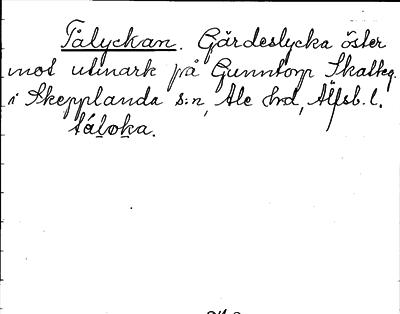 Tålyckan. Gärdeslycka öster
mot utmark på Gunntorp Skatteg.
i Skepplanda s:n, Ale hrd, Älfsb. l.
táloka.